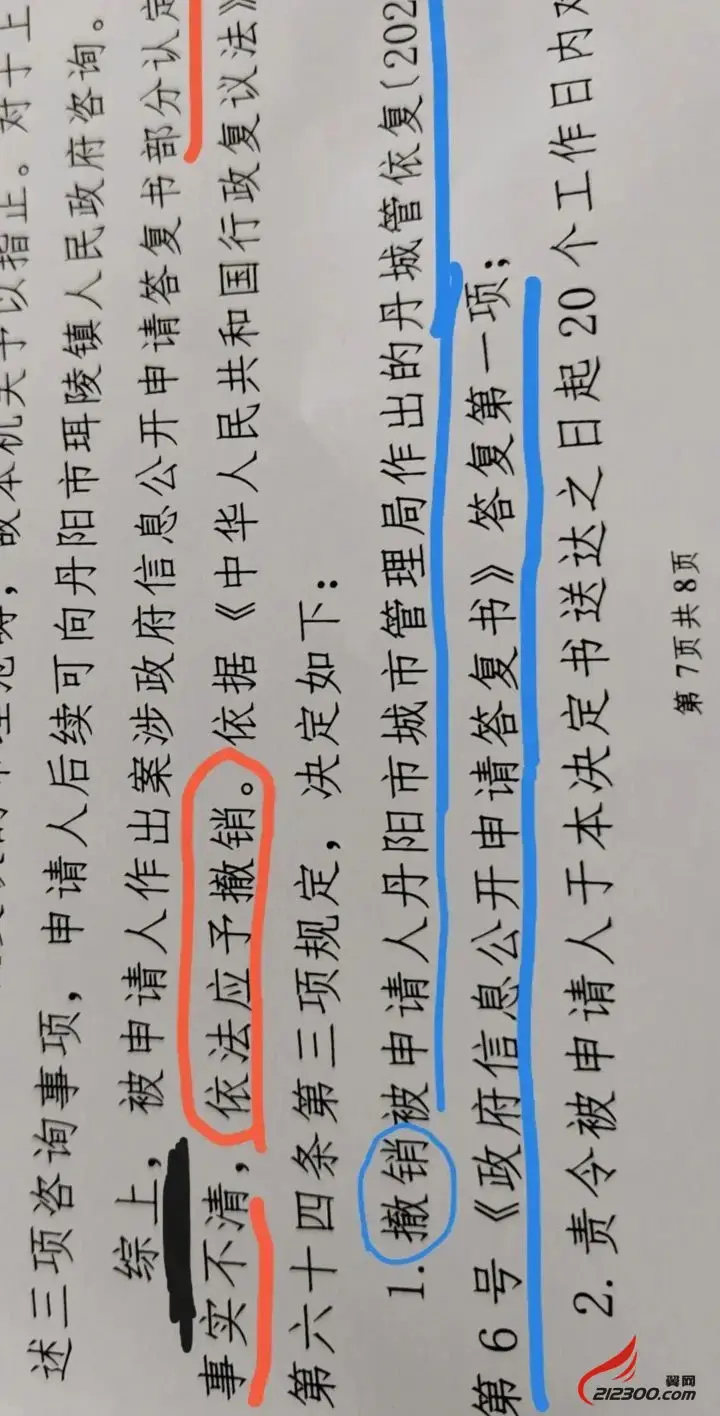 故本机关予以指止。对于上
述三项咨询事项，申请人后续可向丹阳市珥陵镇人民政府咨询。
综上，被申请人作出案涉政府信息公开申请答复书部分认定
事实不清，依法应予撤销。依据《中华人民共和国行政复议法》
第六十四条第三项规定，决定如下：
1. 撤销被申请人丹阳市城市管理局作出的丹城管依复〔202
第 6 号《政府信息公开申请答复书》答复第一项；
2. 责令被申请人于本决定书送达之日起 20 个工作日内对
第 7 页 共 8 页
翼网
212300.com